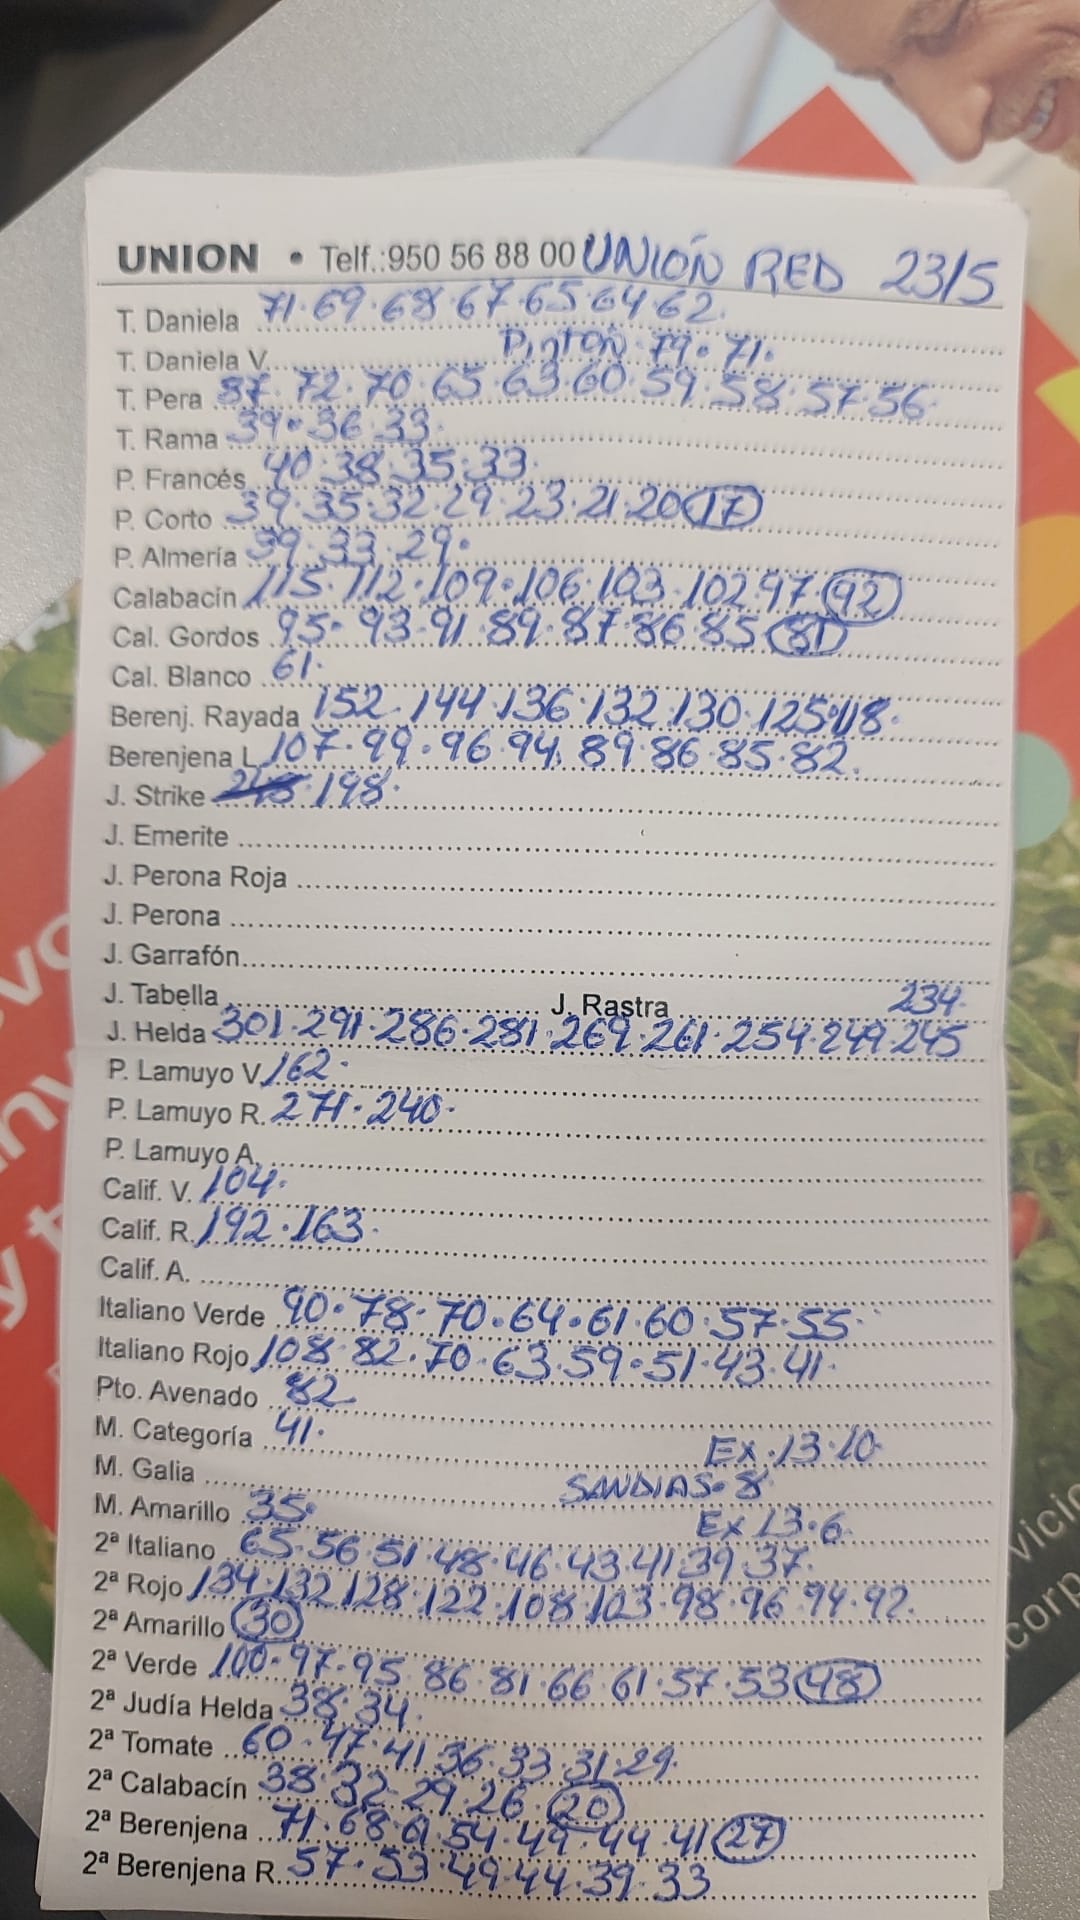 UNION • Telf.:950 56 88 00 UNIÓN RED 23/5
T. Daniela 71·69·68·67·65·64·62.
T. Daniela V. Pinton·79·71.
T. Pera 87·72·70·65·63·60·59·58·57·56.
T. Rama 39·36·33.
P. Francés 40·38·35·33.
P. Corto 39·35·32·29·23·21·20 17
P. Almería 39·33·29.
Calabacín 115·112·109·106·103·102·97·92
Cal. Gordos 95·93·91·89·87·86·85 81
Cal. Blanco 61.
Berenj. Rayada 152·144·136·132·130·125·118.
Berenjena L. 107·99·96·94·89·86·85·82.
J. Strike 198.
J. Emerite
J. Perona Roja
J. Perona
J. Garrafón
J. Tabella J. Rastra 234.
J. Helda 301·291·286·281·269·261·254·249·245
P. Lamuyo V. 162.
P. Lamuyo R. 271·240.
P. Lamuyo A.
Calif. V. 104.
Calif. R. 192·163.
Calif. A.
Italiano Verde 90·78·70·64·61·60·57·55.
Italiano Rojo 108·82·70·63·59·51·43·41.
Pto. Avenado 82
M. Categoría 41. Ex·13·10.
M. Galia SANDIAS·8
M. Amarillo 35. Ex 13·6.
2ª Italiano 65·56·51·48·46·43·41·39·37.
2ª Rojo 134·132·128·122·108·103·98·96·94·92.
2ª Amarillo 30
2ª Verde 100·97·95·86·81·66·61·57·53 48
2ª Judía Helda 38·34.
2ª Tomate 60·47·41·36·33·31·29.
2ª Calabacín 38·32·29·26·20
2ª Berenjena 71·68·61·54·49·44·41 27
2ª Berenjena R. 57·53·49·44·39·33